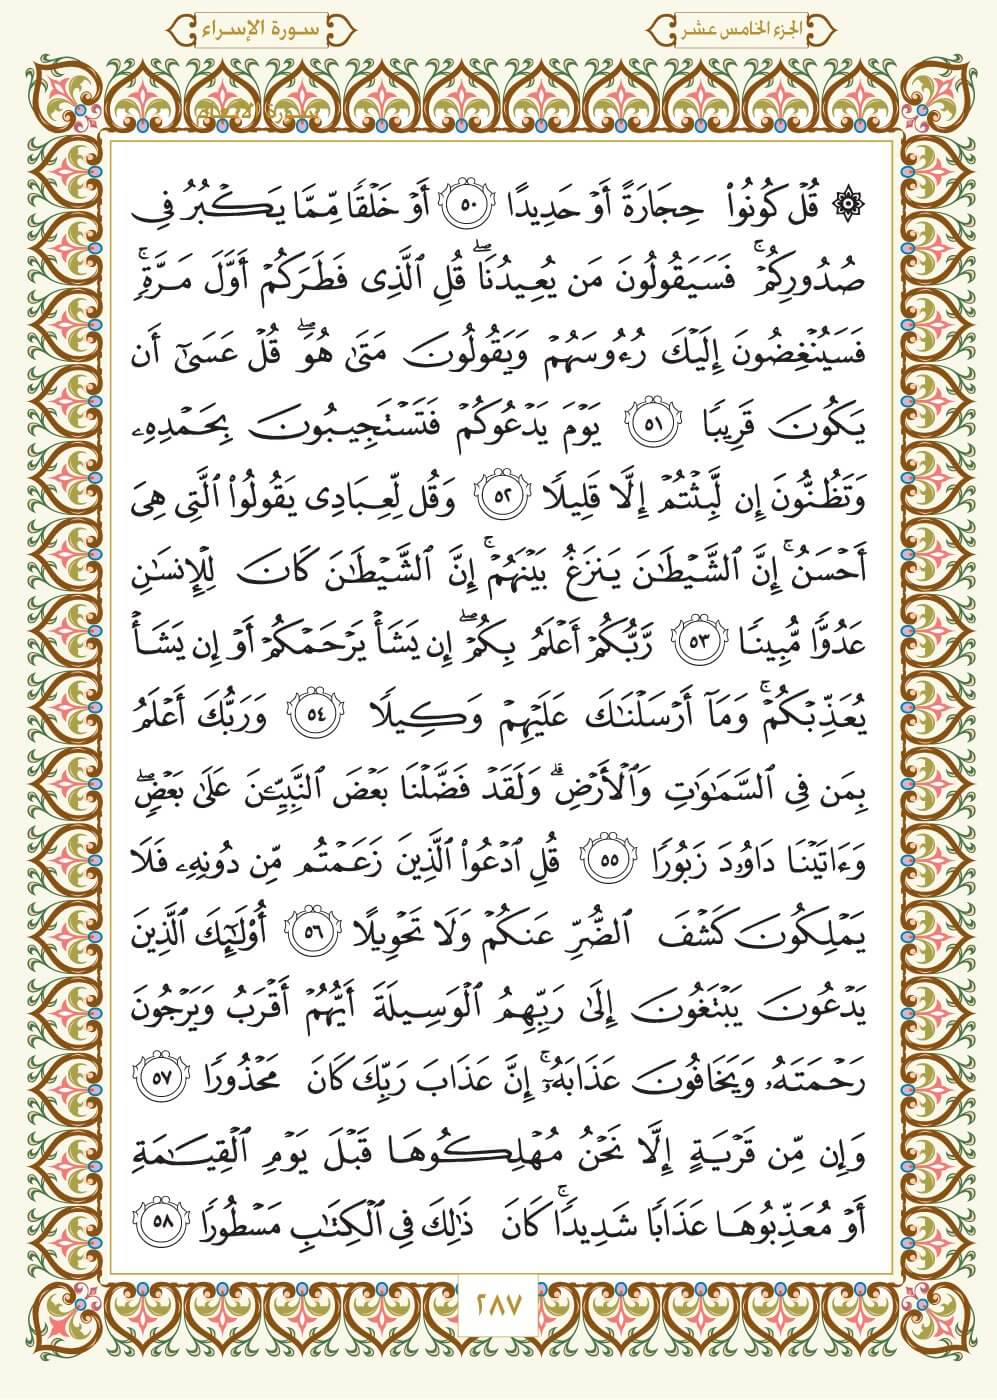 الجزء الخامس عشر
سورة الإسراء
سورة الإسراء
۞ قُلْ كُونُوا۟ حِجَارَةً أَوْ حَدِيدًا ٥٠ أَوْ خَلْقًا مِّمَّا يَكْبُرُ فِى
صُدُورِكُمْ ۚ فَسَيَقُولُونَ مَن يُعِيدُنَا ۖ قُلِ ٱلَّذِى فَطَرَكُمْ أَوَّلَ مَرَّةٍ ۚ
فَسَيُنْغِضُونَ إِلَيْكَ رُءُوسَهُمْ وَيَقُولُونَ مَتَىٰ هُوَ ۖ قُلْ عَسَىٰٓ أَن
يَكُونَ قَرِيبًا ٥١ يَوْمَ يَدْعُوكُمْ فَتَسْتَجِيبُونَ بِحَمْدِهِۦ
وَتَظُنُّونَ إِن لَّبِثْتُمْ إِلَّا قَلِيلًا ٥٢ وَقُل لِّعِبَادِى يَقُولُوا۟ ٱلَّتِى هِىَ
أَحْسَنُ ۚ إِنَّ ٱلشَّيْطَـٰنَ يَنزَغُ بَيْنَهُمْ ۚ إِنَّ ٱلشَّيْطَـٰنَ كَانَ لِلْإِنسَـٰنِ
عَدُوًّا مُّبِينًا ٥٣ رَّبُّكُمْ أَعْلَمُ بِكُمْ ۖ إِن يَشَأْ يَرْحَمْكُمْ أَوْ إِن يَشَأْ
يُعَذِّبْكُمْ ۚ وَمَآ أَرْسَلْنَـٰكَ عَلَيْهِمْ وَكِيلًا ٥٤ وَرَبُّكَ أَعْلَمُ
بِمَن فِى ٱلسَّمَـٰوَٰتِ وَٱلْأَرْضِ ۗ وَلَقَدْ فَضَّلْنَا بَعْضَ ٱلنَّبِيِّـۧنَ عَلَىٰ بَعْضٍ ۖ
وَءَاتَيْنَا دَاوُۥدَ زَبُورًا ٥٥ قُلِ ٱدْعُوا۟ ٱلَّذِينَ زَعَمْتُم مِّن دُونِهِۦ فَلَا
يَمْلِكُونَ كَشْفَ ٱلضُّرِّ عَنكُمْ وَلَا تَحْوِيلًا ٥٦ أُو۟لَـٰٓئِكَ ٱلَّذِينَ
يَدْعُونَ يَبْتَغُونَ إِلَىٰ رَبِّهِمُ ٱلْوَسِيلَةَ أَيُّهُمْ أَقْرَبُ وَيَرْجُونَ
رَحْمَتَهُۥ وَيَخَافُونَ عَذَابَهُۥٓ ۚ إِنَّ عَذَابَ رَبِّكَ كَانَ مَحْذُورًا ٥٧
وَإِن مِّن قَرْيَةٍ إِلَّا نَحْنُ مُهْلِكُوهَا قَبْلَ يَوْمِ ٱلْقِيَـٰمَةِ
أَوْ مُعَذِّبُوهَا عَذَابًا شَدِيدًا ۚ كَانَ ذَٰلِكَ فِى ٱلْكِتَـٰبِ مَسْطُورًا ٥٨
٢٨٧